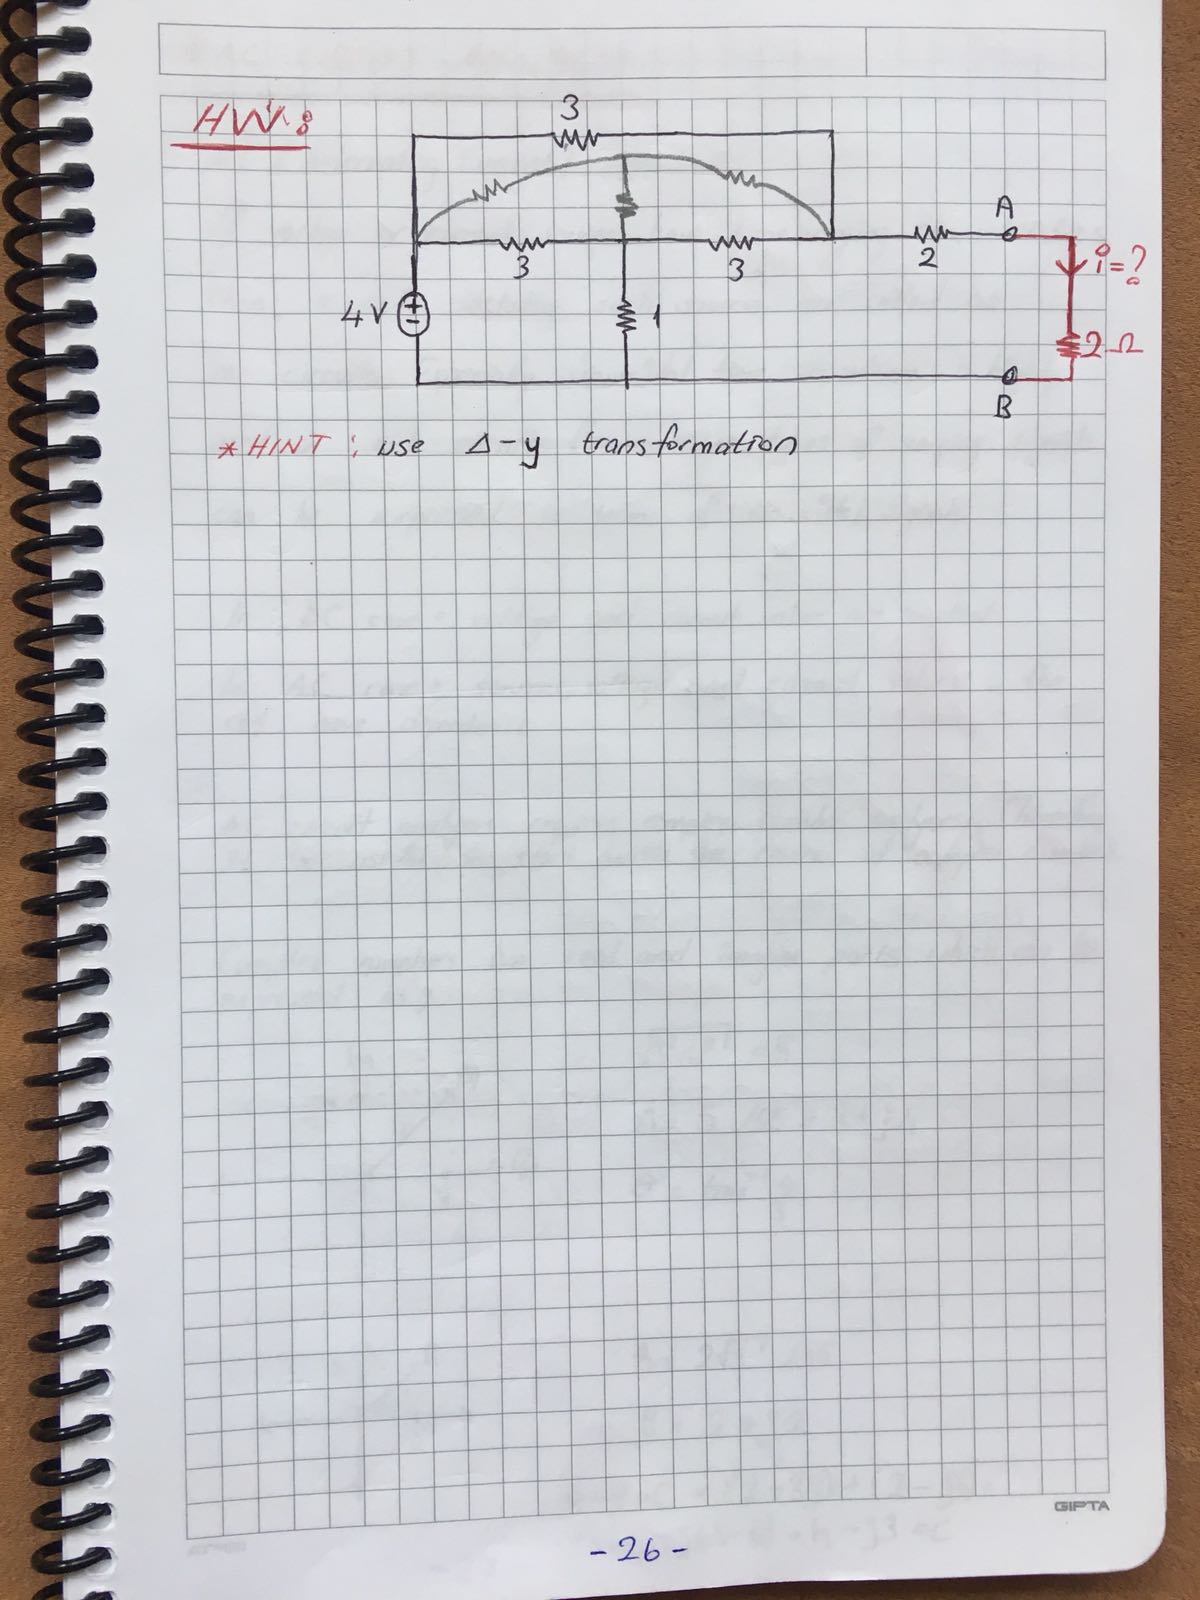 HW:
3
3
3
2
A
i=?
4V
1
2Ω
B
*HINT: use Δ-y transformation
GIPTA
-26-